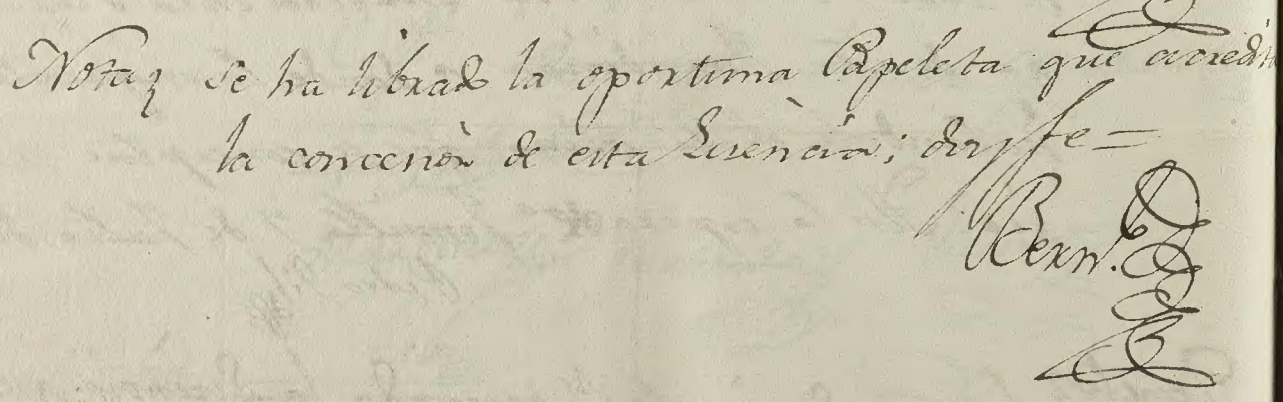 Nota, Se ha librado la oportuna Papeleta que acredita
la concesiòn de esta Lisència; doy fe =
Bern.